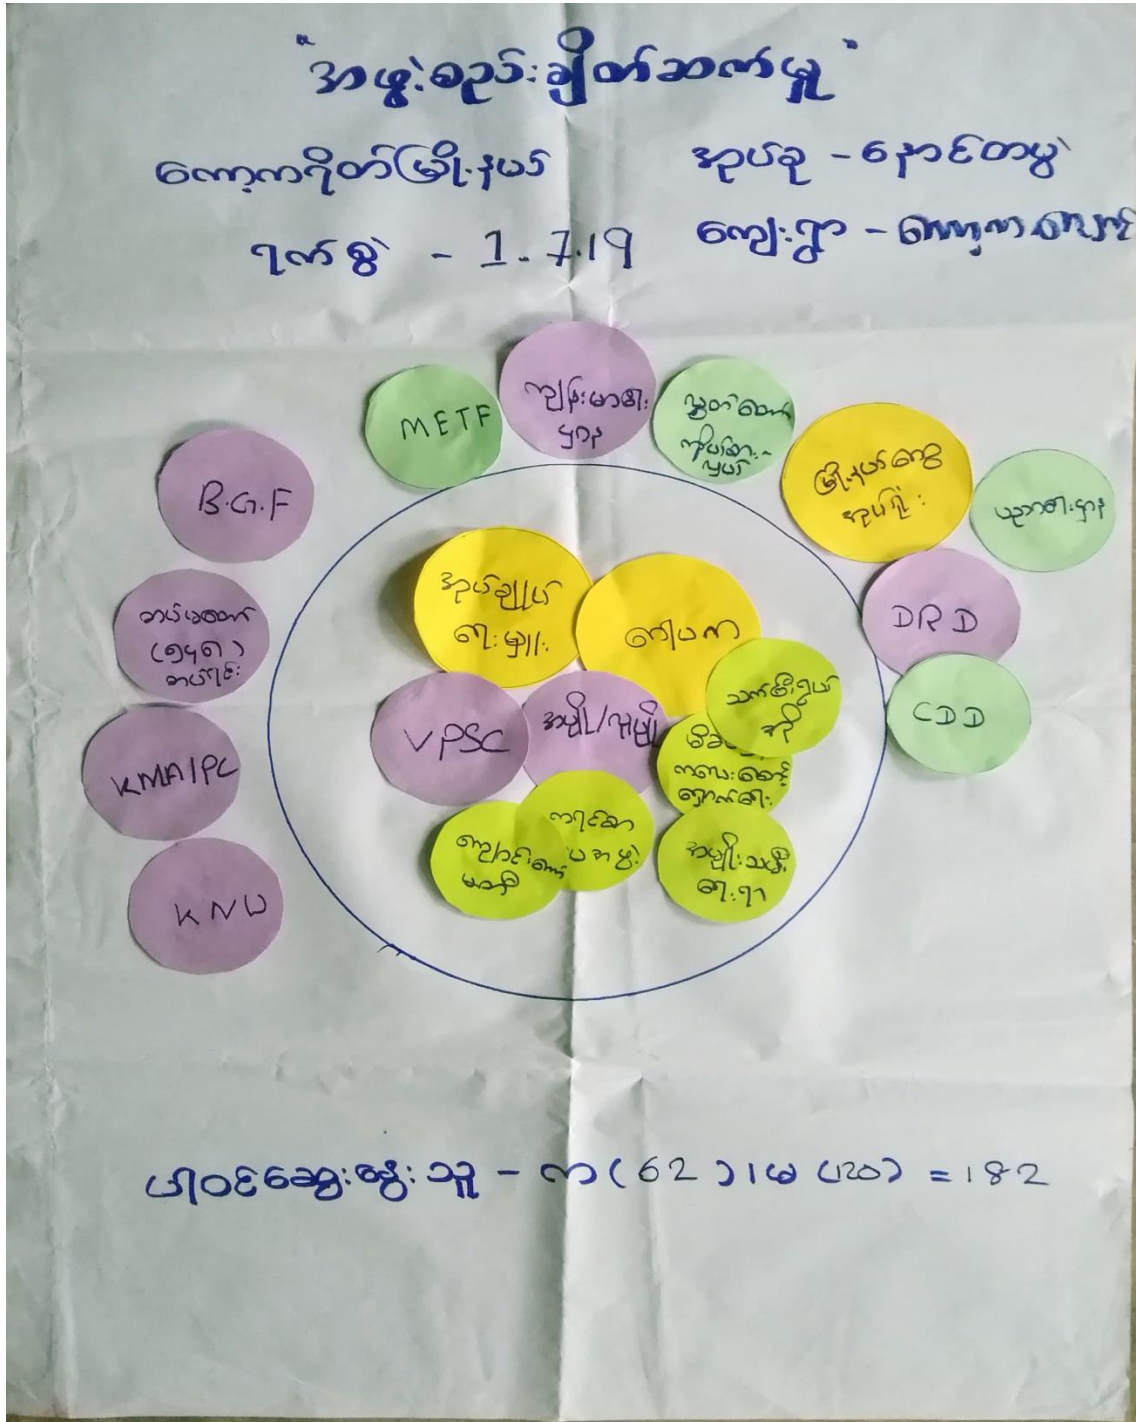 "အဖွဲ့စည်းချိတ်ဆက်မှု"
ကော့ကရိတ်မြို့နယ်
အုပ်စု - နောင်တပွဲ
ရက်စွဲ - 1.7.19
ကျေးရွာ -
METF
ကျန်းမာရေး
ဌာန
လွှတ်တော်
ကိုယ်စား-
လှယ်
မြို့နယ်ထွေ
အုပ်ရုံး
ပညာရေးဌာန
B.G.F
DRD
CDD
တပ်မတော်
(၅၄၅)
တပ်ရင်း
KMA/PC
KNU
အုပ်ချုပ်
ရေးမှူး
ကျေးပကာ
VPSC
သက်ကြီးရွယ်
အို
မိခင်
ကလေးစောင့်
ရှောက်ရေး
အမျိုးသမီး
ရေးရာ
ပါဝင်ဆွေးနွေးသူ - ကျ (62) ၊ မ (120) = 182